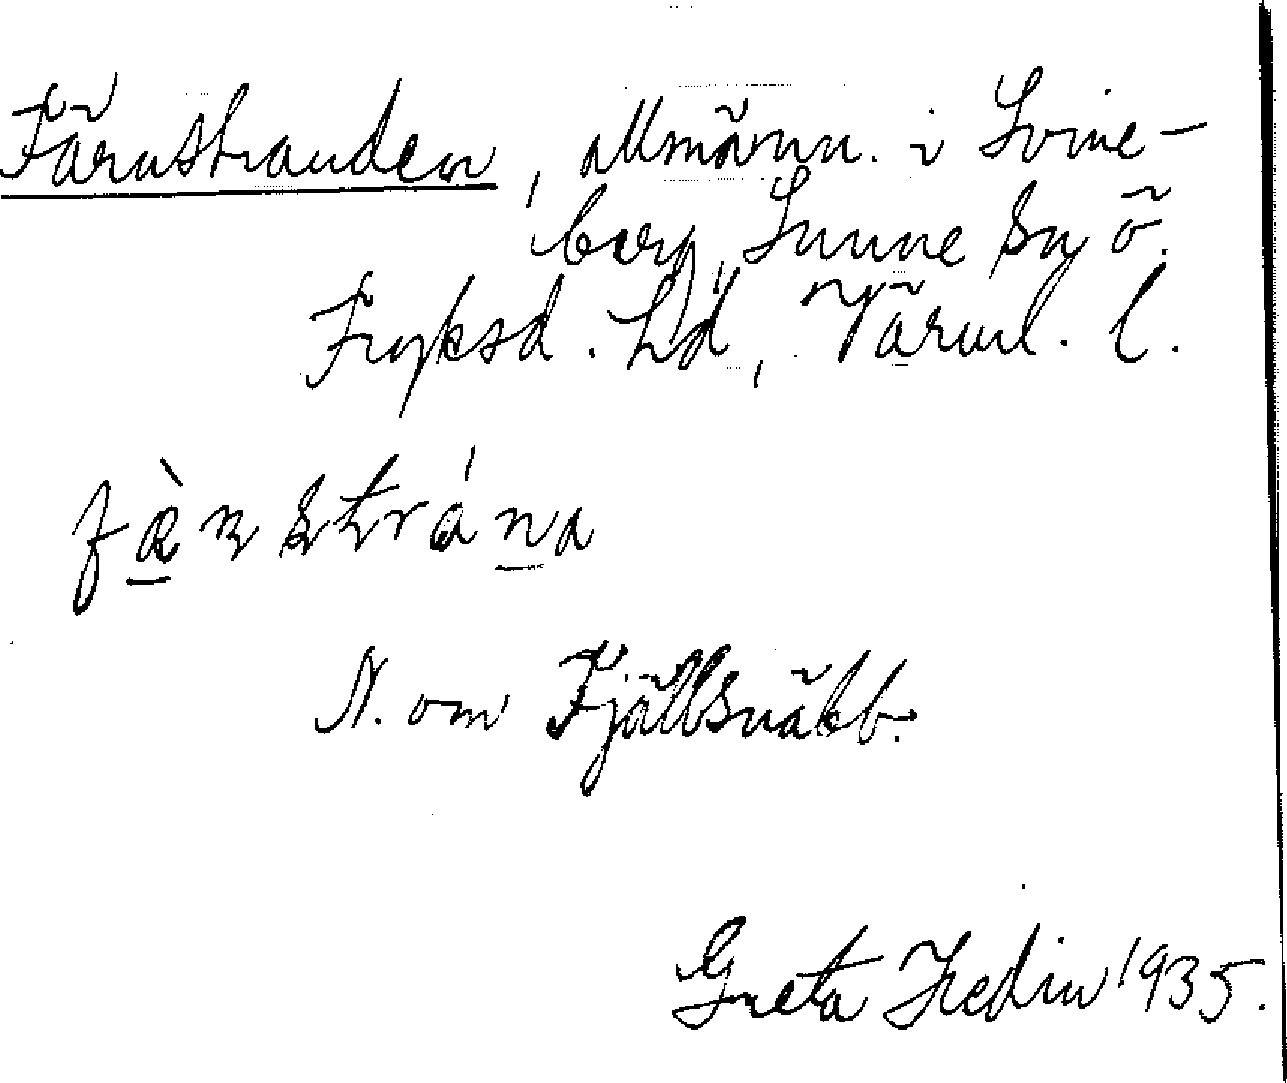 Färnstranden, allmänn. i Svine-
berg, Sunne sn ö.
Fryksd. hd, Värml. l.
fæ̀n strána
N. om Fjällsnäbb.
Greta Hedin 1935.